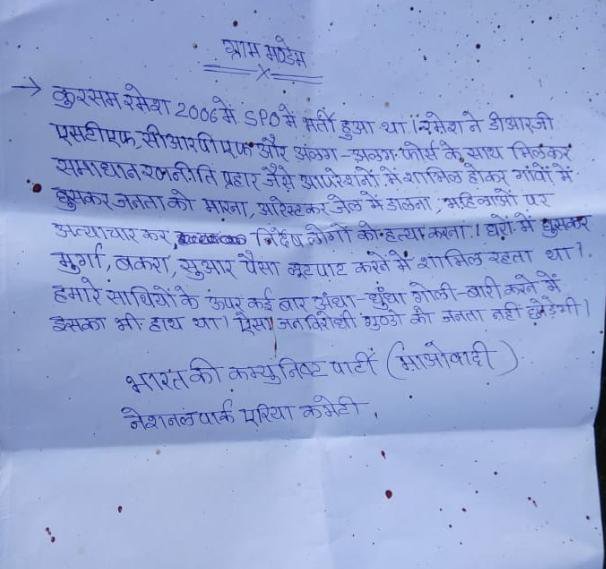 ग्राम मण्डेम
→ कुरसम रमेश 2006 में SPO में भर्ती हुआ था। रमेश ने डीआरजी
एसटीएफ, सीआरपीएफ और अंलग-अलग फोर्स के साथ मिलकर
समाधान रणनीति प्रहार जैसे आपरेशनों में शामिल होकर गांवों में
घुसकर जनता को मारना, आरेस्टकर जेल में डालना, महिलाओं पर
अत्याचार कर निर्दोष लोगों को हत्या करना। घरों में घुसकर
मुर्गा, बकरा, सुआर पैसा लूटपाट करने में शामिल रहता था।
हमारे साथियों के ऊपर कई बार अंधा-धुंधा गोली-बारी करने में
इसका भी हाथ था। ऐसा जनविरोधी गुण्डो को जनता नहीं छोड़ेगी।
भारत की कम्युनिस्ट पार्टी (माओवादी)
नेशनल पार्क एरिया कमेटी,